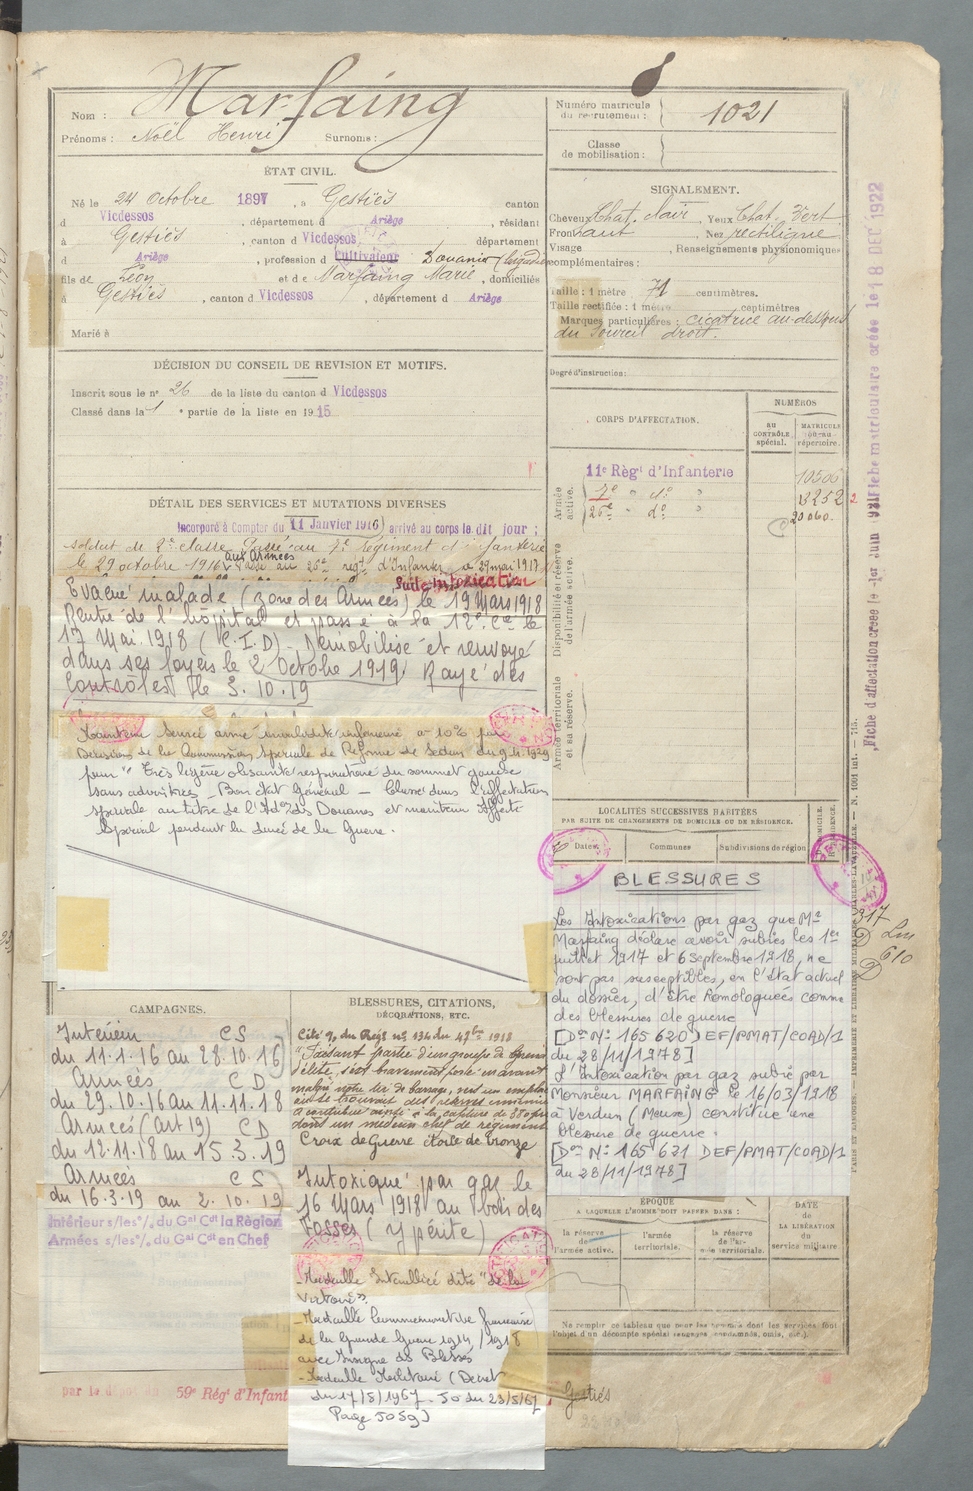 Nom : Marfaing
Prénoms : Noël Henri Surnoms :
ÉTAT CIVIL.
Né le 24 Octobre 1897, à Gestiès canton
d Vicdessos, département d Ariège, résidant
à Gestiès, canton d Vicdessos, département
d Ariège, profession d Cultivateur Douanier (brigadier
fils de Léon et de Marfaing Marie, domiciliés
à Gestiès, canton d Vicdessos, département d Ariège
Marié à
DÉCISION DU CONSEIL DE REVISION ET MOTIFS.
Inscrit sous le n° 26 de la liste du canton d Vicdessos
Classé dans la 1 e partie de la liste en 1915
DÉTAIL DES SERVICES ET MUTATIONS DIVERSES
Incorporé à Compter du 11 Janvier 1916 arrivé au corps le dit jour ;
soldat de 2e classe. Passé au 7e Régiment d'infanterie
le 29 octobre 1916 aux Armées Passé au 26e régt d'Infanterie 29 mai 1917
Suite Intoxication
Evacué malade (zone des Armées) le 19 Mars 1918
Rentré de l'hôpital et passé à la 12e Cie le
17 Mai 1918 (C.I.D). Démobilisé et renvoyé
dans ses foyers le 2 Octobre 1919. Rayé des
Contrôles le 3.10.19
Maintenu Service armé invalidité inférieure à 10% par
Décision de la Commission Spéciale de Réforme de Sedan du 9.4.1929
pour "Très légère obscurité respiratoire du sommet gauche
sans adventices - Bon état Général - Classé dans l'affectation
spéciale au titre de l'Ad° des Douanes et maintenu Affecté
Spécial pendant la durée de la Guerre.
CAMPAGNES.
Intérieur CS
du 11.1.16 au 28.10.16
Armées CD
du 29.10.16 au 11.11.18
Armées (art 19) CD
du 12.11.18 au 15.3.19
Armées CS
du 16.3.19 au 2.10.19
Intérieur s/les °/. du Gal Cdt la Région
Armées s/les °/. du Gal Cdt en Chef
par le dépôt du 59e Régt d'Infant
BLESSURES, CITATIONS,
DÉCORATIONS, ETC.
Cité °/. du Régt n° 134 du 1918
"Faisant partie d'un groupe de
d'élite, s'est bravement porté en avant
malgré notre tir de barrage, vers un
où se trouvait des
a contribué ainsi à la capture de
dont un médecin chef de régiment
Croix de Guerre étoile de bronze
Intoxiqué par gaz le
16 Mars 1918 au bois des
Fosses (ypérite)
- Médaille Interalliée dite "de la
Victoire".
- Médaille Commémorative française
de la Grande Guerre 1914/1918
avec Insigne des Blessés
- Médaille Militaire (Décret
du 17/5/1967 - JO du 23/5/67
Page 5059)
Gestiès
Numéro matricule
du recrutement : 1021
Classe
de mobilisation :
SIGNALEMENT.
Cheveux Chat. clair, Yeux Chat. Vert
Front haut, Nez rectiligne
Visage, Renseignements physionomiques
complémentaires :
Taille : 1 mètre 71 centimètres.
Taille rectifiée : 1 mètre centimètres
Marques particulières : cicatrice au-dessus
du sourcil droit.
Degré d'instruction :
CORPS D'AFFECTATION.
NUMÉROS
AU CONTRÔLE spécial.
MATRICULE ou au répertoire.
Armée active.
11e Régt d'Infanterie 10506
7e " d° " 13252
26e " d° " 20060
Disponibilité et réserve de l'armée active.
Armée territoriale et sa réserve.
LOCALITÉS SUCCESSIVES HABITÉES
PAR SUITE DE CHANGEMENTS DE DOMICILE OU DE RÉSIDENCE.
Dates Communes Subdivisions de région
BLESSURES
Les Intoxications par gaz que Mr
Marfaing déclare avoir subies les 1er
juillet 1917 et 6 septembre 1918, ne
sont pas susceptibles, en l'état actuel
du dossier, d'être homologuées comme
des blessures de guerre
[Don N° 165 620) DEF/PMAT/COAD/1
du 28/11/1978]
L'Intoxication par gaz subie par
Monsieur MARFAING le 16/03/1918
à Verdun (Meuse) constitue une
blessure de guerre.
[Don N° 165 621 DEF/PMAT/COAD/1
du 28/11/1978]
ÉPOQUE
A LAQUELLE L'HOMME DOIT PASSER DANS :
la réserve de l'armée active.
l'armée territoriale.
la réserve de l'armée territoriale.
DATE de LA LIBÉRATION du service militaire.
Ne remplir ce tableau que pour les hommes dont les services font
l'objet d'un décompte spécial (engagés, condamnés, omis, etc.).
Fiche d'affectation créée le 1er Juin 1921
Fiche matriculaire créée le 18 DEC 1922
PARIS ET LIMOGES. — IMPRIMERIE ET LIBRAIRIE MILITAIRES CHARLES-LAVAUZELLE. — N. 1001 int. — 715.
317
610